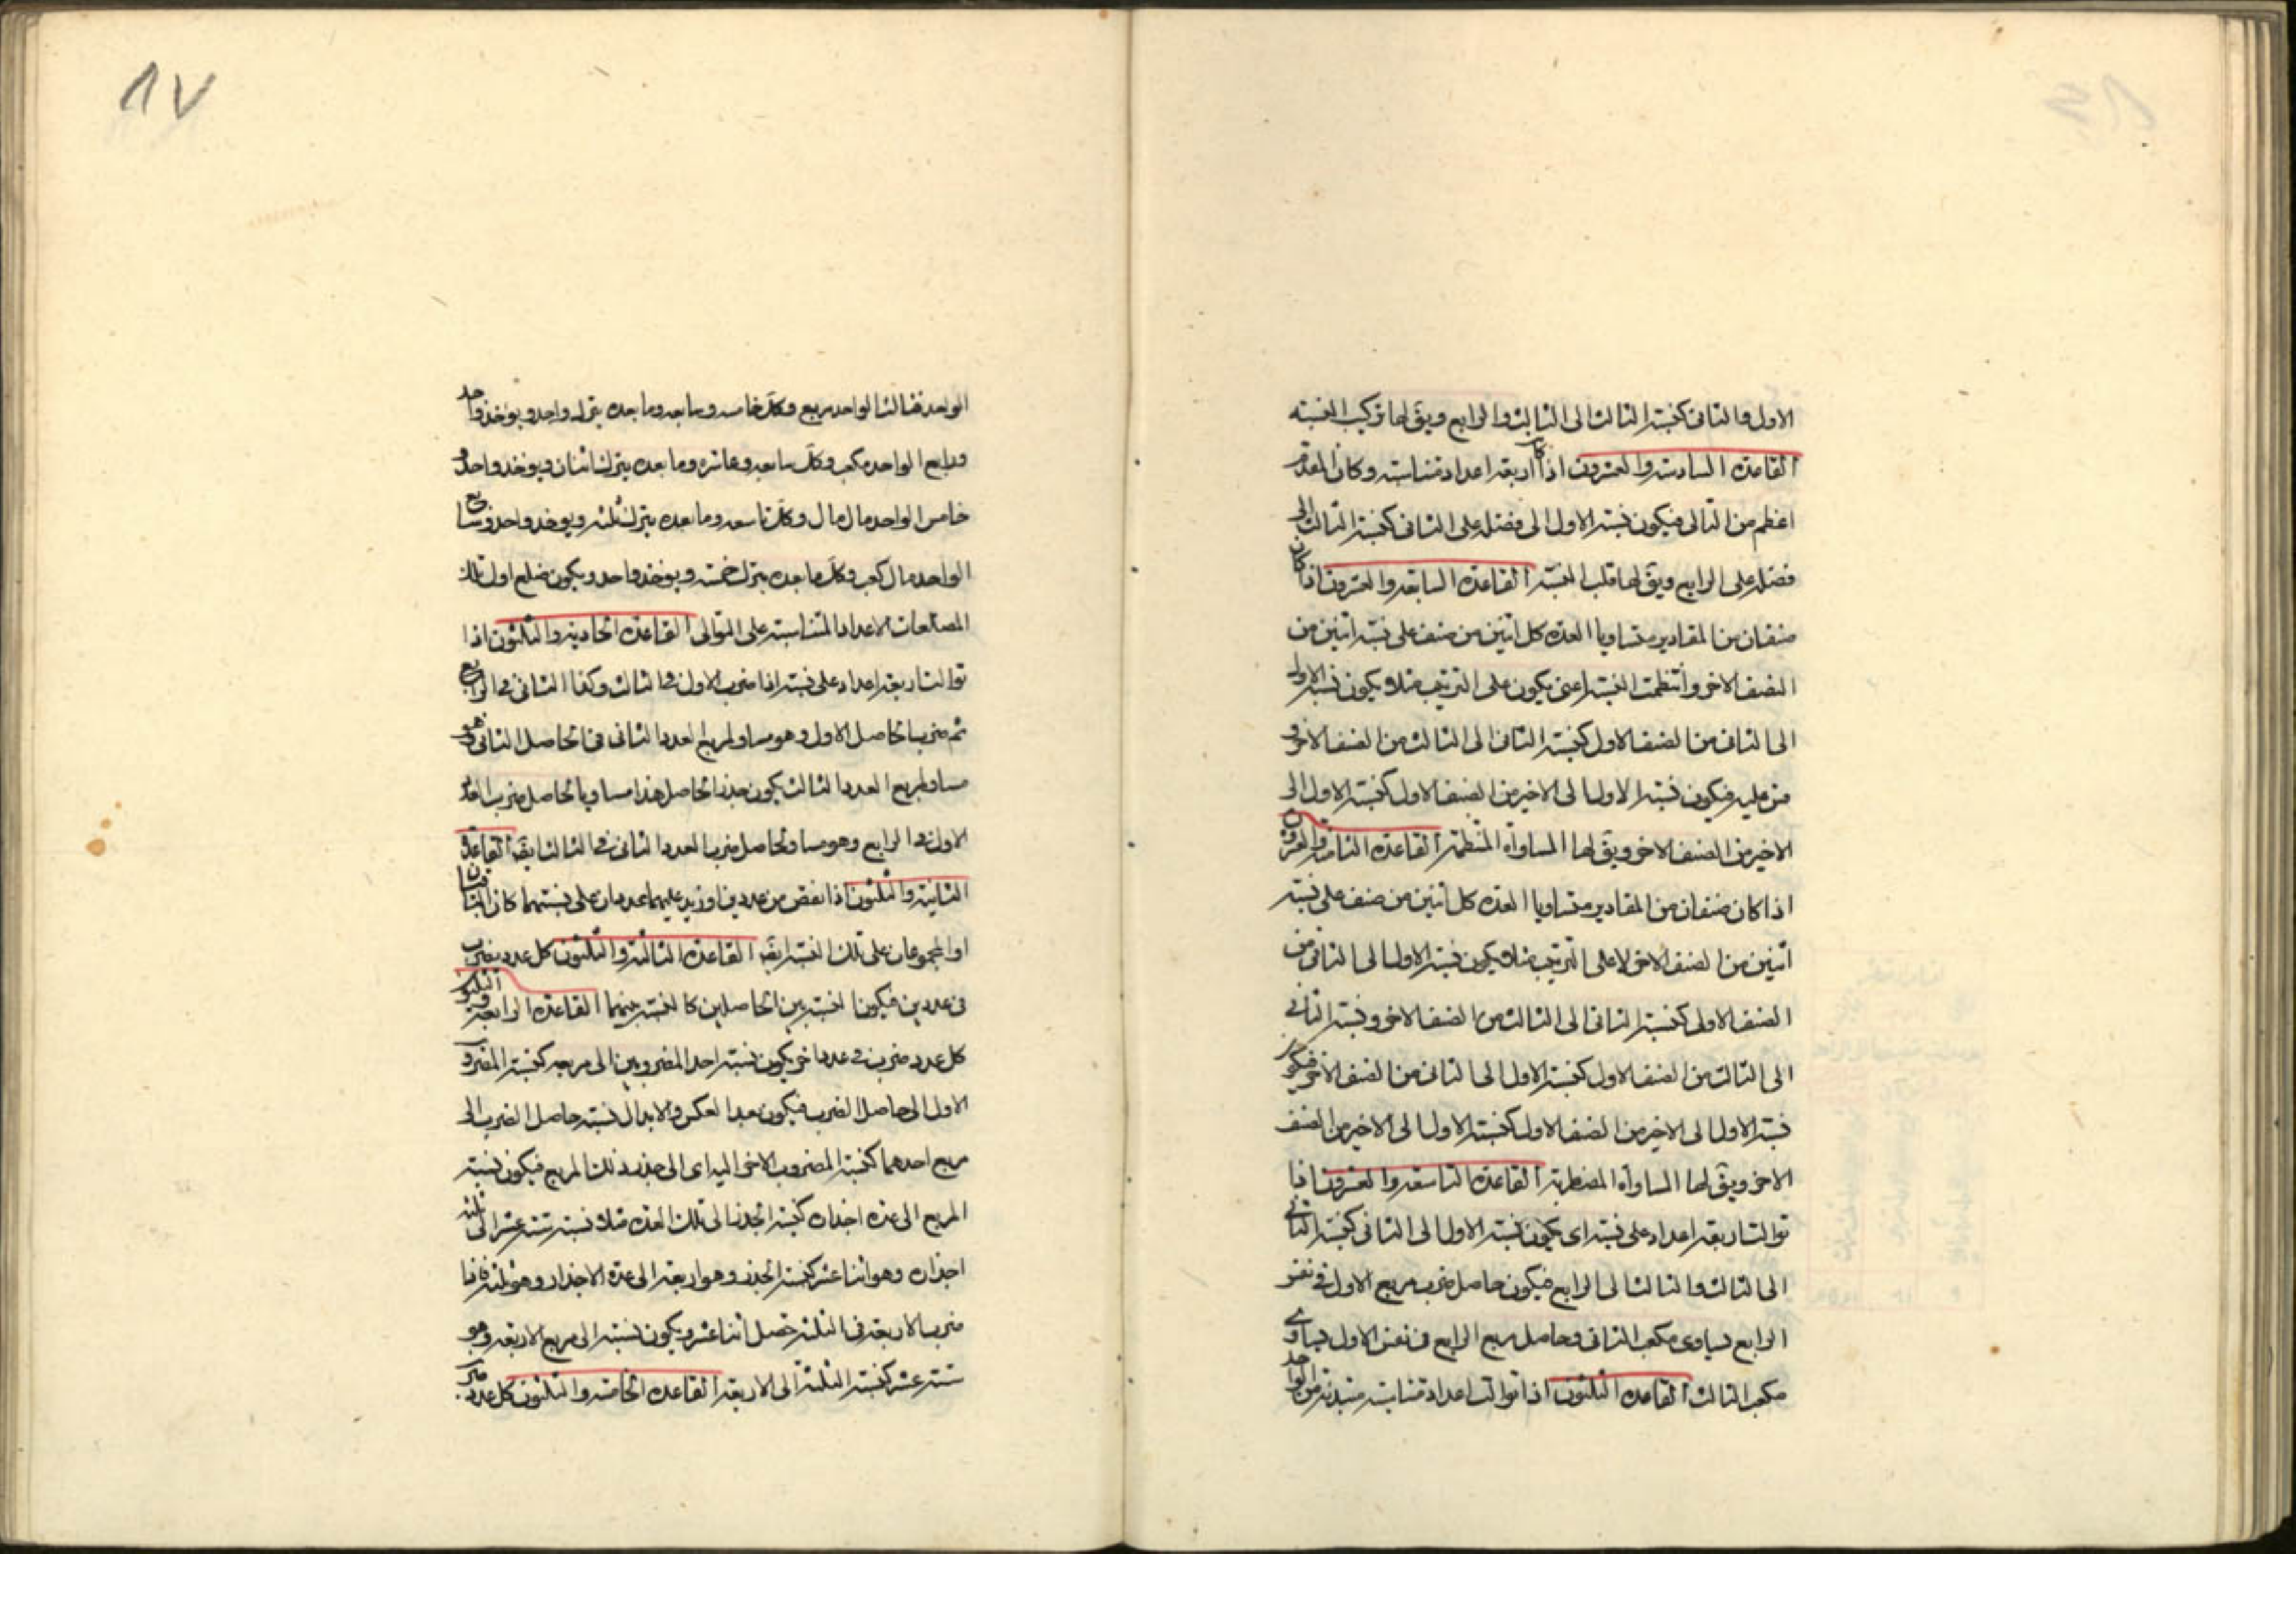 الاول والثانى كنسبة الثالث الى الثالث والرابع ويق لها تركيب النسبه
القاعدة السادسة والعشرون اذا كان اربعة اعداد متناسبة وكان المقدم
اعظم من التالى فيكون نسبة الاول الى فضله على الثانى كنسبة الثالث الى
فضله على الرابع ويق لها قلب النسبة القاعدة السابعة والعشرون اذا كان
صنفان من المقادير متساويا العدة كل اثنين من صنف على نسبة اثنين من
الصنف الاخر وانتظمت النسبة اعنى يكون على الترتيب مثلا يكون نسبة الاول
الى الثانى من الصنف الاول كنسبة الثانى الى الثالث من الصنف الاخر و
قس عليه فيكون نسبة الاول الى الاخير من الصنف الاول كنسبة الاول الى
الاخير من الصنف الاخر ويق لها المساواة المنتظمة القاعدة الثامنة والعشرون
اذا كان صنفان من المقادير متساويا العدة كل اثنين من صنف على نسبة
اثنين من الصنف الاخر لا على الترتيب مثلا فيكون نسبة الاول الى الثانى من
الصنف الاول كنسبة الثانى الى الثالث من الصنف الاخر ونسبة الثانى
الى الثالث من الصنف الاول كنسبة الاول الى الثانى من الصنف الاخر فيكون
نسبة الاول الى الاخير من الصنف الاول كنسبة الاول الى الاخير من الصنف
الاخر ويق لها المساواة المضطربة القاعدة التاسعة والعشرون اذا
توالت اربعة اعداد على نسبة اى يكون نسبة الاول الى الثانى كنسبة الثانى
الى الثالث والثالث الى الرابع فيكون حاصل ضرب مربع الاول فى نفس
الرابع يساوى مكعب الثانى وحاصل مربع الرابع فى نفس الاول يساوى
مكعب الثالث القاعدة الثلثون اذا توالت اعداد متناسبة مبتدئة من الواحد
الواحد فثالث الواحد مربع وكل خامس وسابع وما بعده يترك واحد ويوخذ واحد
ورابع الواحد مكعب وكل سابع وعاشره وما بعده يترك اثنان ويوخذ واحد و
خامس الواحد مال مال وكل تاسعه وما بعده يترك ثلثه ويوخذ واحد وسابع
الواحد مال كعب وكل ما بعده يترك خمسه ويوخذ واحد ويكون ضلع اول تلك
المضلعات الاعداد المتناسبة على التوالى القاعدة الحادية والثلثون اذا
توالت اربعة اعداد على نسبة اذا ضرب الاول فى الثالث وكذا الثانى فى الرابع
ثم ضرب الحاصل الاول وهو مساو لمربع العدد الثانى فى الحاصل الثانى وهو
مساو لمربع العدد الثالث يكون جذر الحاصل هذا مساويا لحاصل ضرب العدد
الاول فى الرابع وهو مساو لحاصل ضرب العدد الثانى فى الثالث ايضا القاعدة
الثانية والثلثون اذا نقص من عددين او زيد عليهما عددان على نسبتهما كان الباقيان
او المجموعان على تلك النسبة ايضا القاعدة الثالثة والثلثون كل عدد يضرب
فى عددين فيكون النسبة بين الحاصلين كالنسبة بينهما القاعدة الرابعة والثلثون
كل عدد ضرب فى عدد اخر يكون نسبة احد المضروبين الى مربعه كنسبة المضروب
الاول الى حاصل الضرب فيكون بعد العكس والابدال نسبة حاصل الضرب الى
مربع احدهما كنسبة المضروب الاخر اليه اى الى جذر ذلك المربع فيكون نسبة
المربع الى عدة اجذاره كنسبة الجذر الى تلك العدة مثلا نسبة ستة عشر الى ثلثة
اجذاره وهو اثنا عشر كنسبة الجذر وهو اربعة الى عدة الاجذار وهو ثلثه فاذا
ضرب الاربعة فى الثلثة حصل اثنا عشر ويكون نسبته الى مربع الاربعة وهو
ستة عشر كنسبة الثلثة الى الاربعة القاعدة الخامسة والثلثون كل عدد ضرب